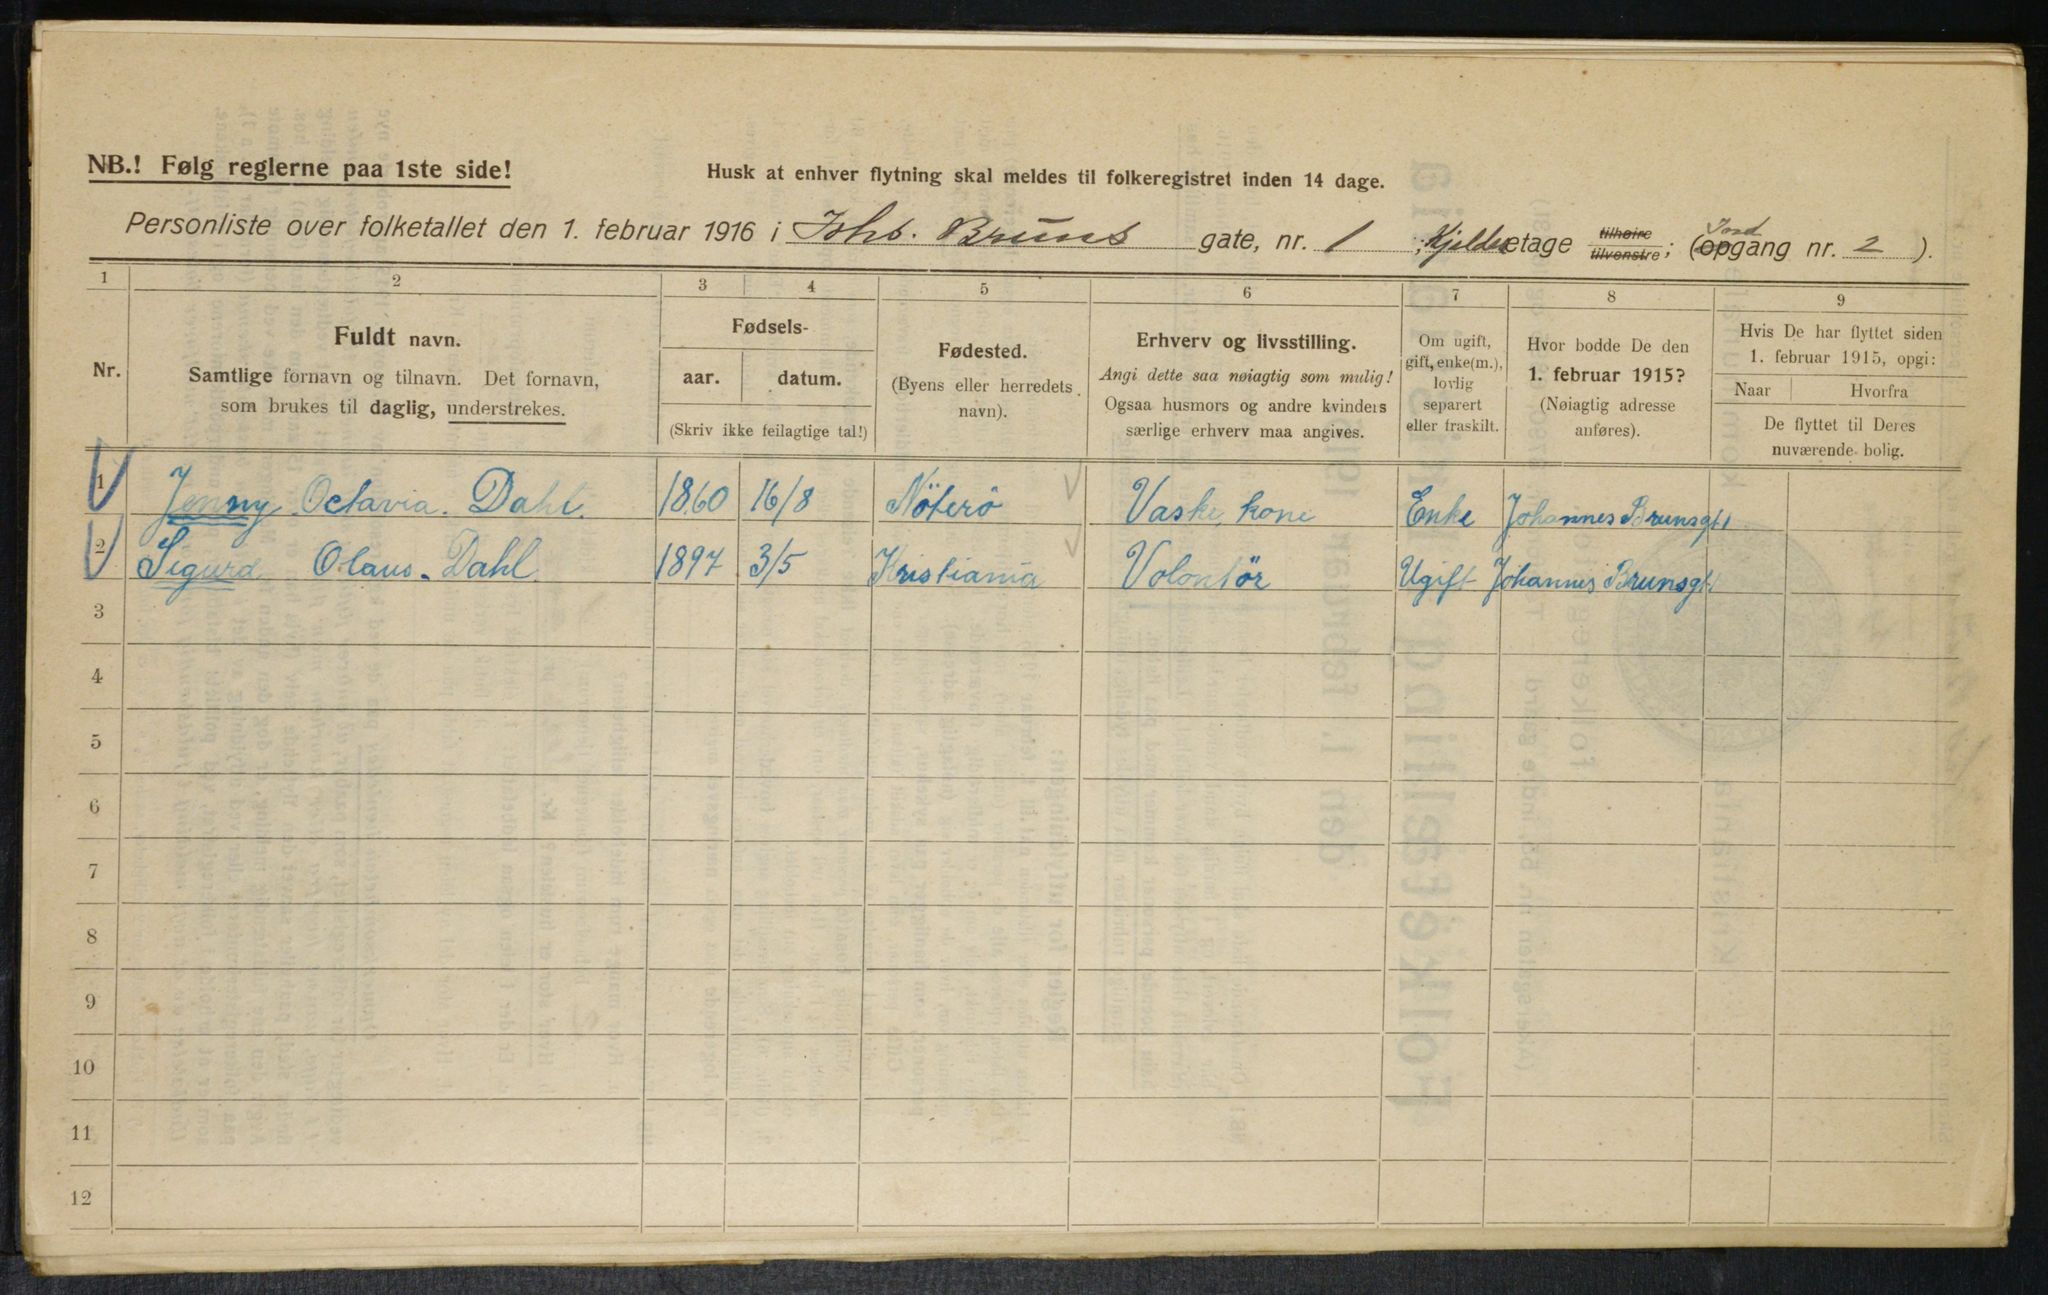 NB.! Følg reglerne paa 1ste side!
Husk at enhver flytning skal meldes til folkeregistret inden 14 dage.
Personliste over folketallet den 1. februar 1916 i Johs. Bruns gate, nr. 1, Kjelder etage tilhøire tilvenstre; (opgang nr. 2).
1 2 3 4 5 6 7 8 9
Nr.
Fuldt navn.
Samtlige fornavn og tilnavn. Det fornavn,
som brukes til daglig, understrekes.
Fødsels-
aar. datum.
(Skriv ikke feilagtige tal!)
Fødested.
(Byens eller herredets
navn).
Erhverv og livsstilling.
Angi dette saa nøiagtig som mulig!
Ogsaa husmors og andre kvinders
særlige erhverv maa angives.
Om ugift,
gift, enke(m.),
lovlig
separert
eller fraskilt.
Hvor bodde De den
1. februar 1915?
(Nøiagtig adresse
anføres).
Hvis De har flyttet siden
1. februar 1915, opgi:
Naar Hvorfra
De flyttet til Deres
nuværende bolig.
1 Jenny Octavia Dahl. 1860 16/8 Nöterö Vaske kone Enke Johannes Brunsgt 1
2 Sigurd Olaus Dahl 1897 3/5 Kristiania Volontör Ugift Johannes Brunsgt 1
3
4
5
6
7
8
9
10
11
12